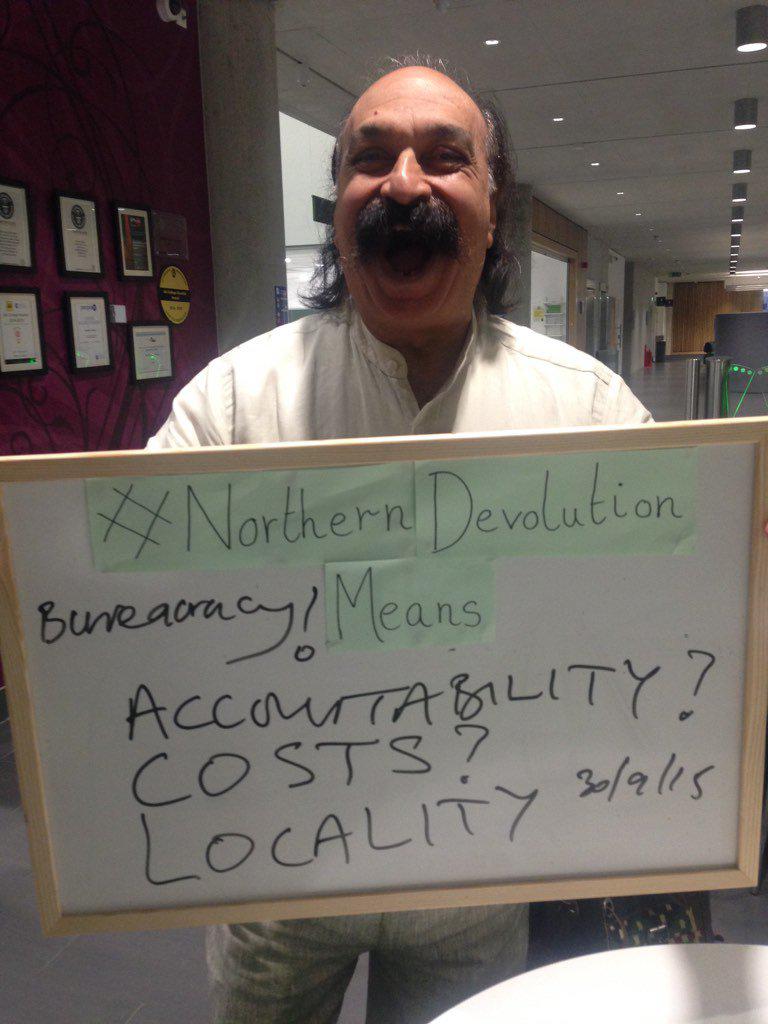 #Northern Devolution
Bureacracy! Means
ACCOUNTABILITY?
COSTS?
LOCALITY 30/9/15